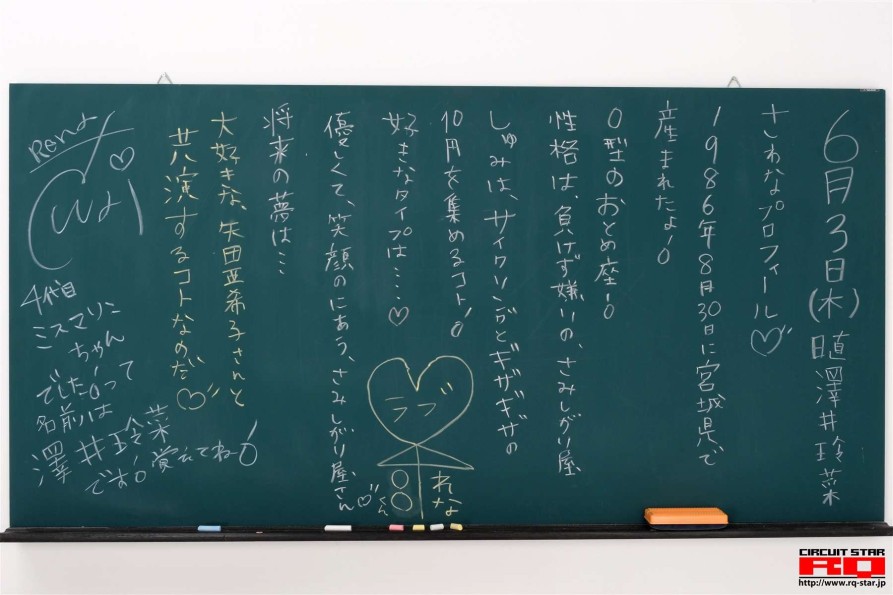 6月3日(木) 日直 澤井玲菜
さわなプロフィール♡
1986年8月30日に宮城県で
産まれたよ!
O型のおとめ座!
性格は、負けず嫌いの、さみしがり屋
しゅみは、サイクリングとギザギザの
10円を集めるコト!
好きなタイプは……♡
優しくて、笑顔のにあう、さみしがり屋さん♡
将来の夢は…
大好きな、矢田亜希子さんと
共演するコトなのだ♡
ラブ
れな
○○くん
Rena
4代目
ミスマリン
ちゃん
でした!って
名前は
澤井玲菜
です!覚えてねー!
CIRCUIT STAR
RQ
http://www.rq-star.jp